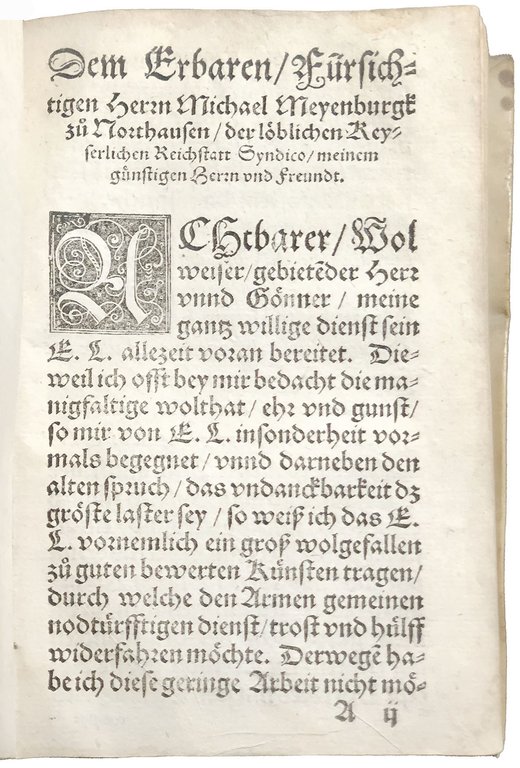 Dem Erbaren/Fürsich⸗
tigen Herrn Michael Meyenburgk
zů Northausen/der löblichen Key⸗
serlichen Reichstatt Syndico/meinem
günstigen Herrn vnd Freundt.
ACHtbarer/Wol
weiser/gebietẽder Herr
vnnd Gönner/meine
gantz willige dienst sein
E. L. allezeit voran bereitet. Die⸗
weil ich offt bey mir bedacht die ma⸗
nigfaltige wolthat/ehr vnd gunst/
so mir von E. L. insonderheit vor⸗
mals begegnet/vnnd darneben den
alten spruch/das vndanckbarkeit dz
gröste laster sey/so weiß ich das E.
L. vornemlich ein groß wolgefallen
zů guten bewerten Künsten tragen/
durch welche den Armen gemeinen
nodtürfftigen dienst/trost vnd hülff
widerfahren möchte. Derwegẽ ha⸗
be ich diese geringe Arbeit nicht mö⸗
A ij